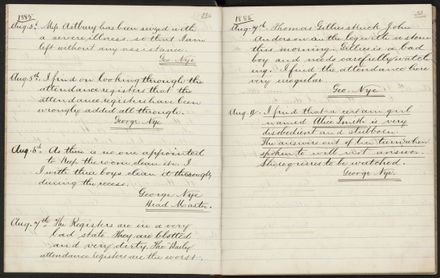 1885
Aug. 3rd. Miss Astbury has been seized with
a severe illness so that I am
left without any assistance.
Geo. Nye.
Aug. 5th. I find on looking through the
attendance registers that the
attendance registers have been
wrongly added all through.
George Nye.
Aug. 6th. As there is no one appointed
to keep the room clean I
with three boys clean it thoroughly
during the recess.
George Nye
Head Master.
Aug. 7th The Registers are in a very
bad state. They are blotted
and very dirty. The Daily
attendance registers are the worst.
1885
Aug. 7th Thomas Gillies struck John
Anderson on the leg with a stone
this morning. Gillies is a bad
boy and needs carefully watch
ing. I find the attendance here
very irregular.
Geo. Nye.
I find that a certain girl
named Alice Smith is very
disobedient and stubborn.
She answers out of her turn & when
spoken to will not answer.
She requires to be watched.
George Nye.